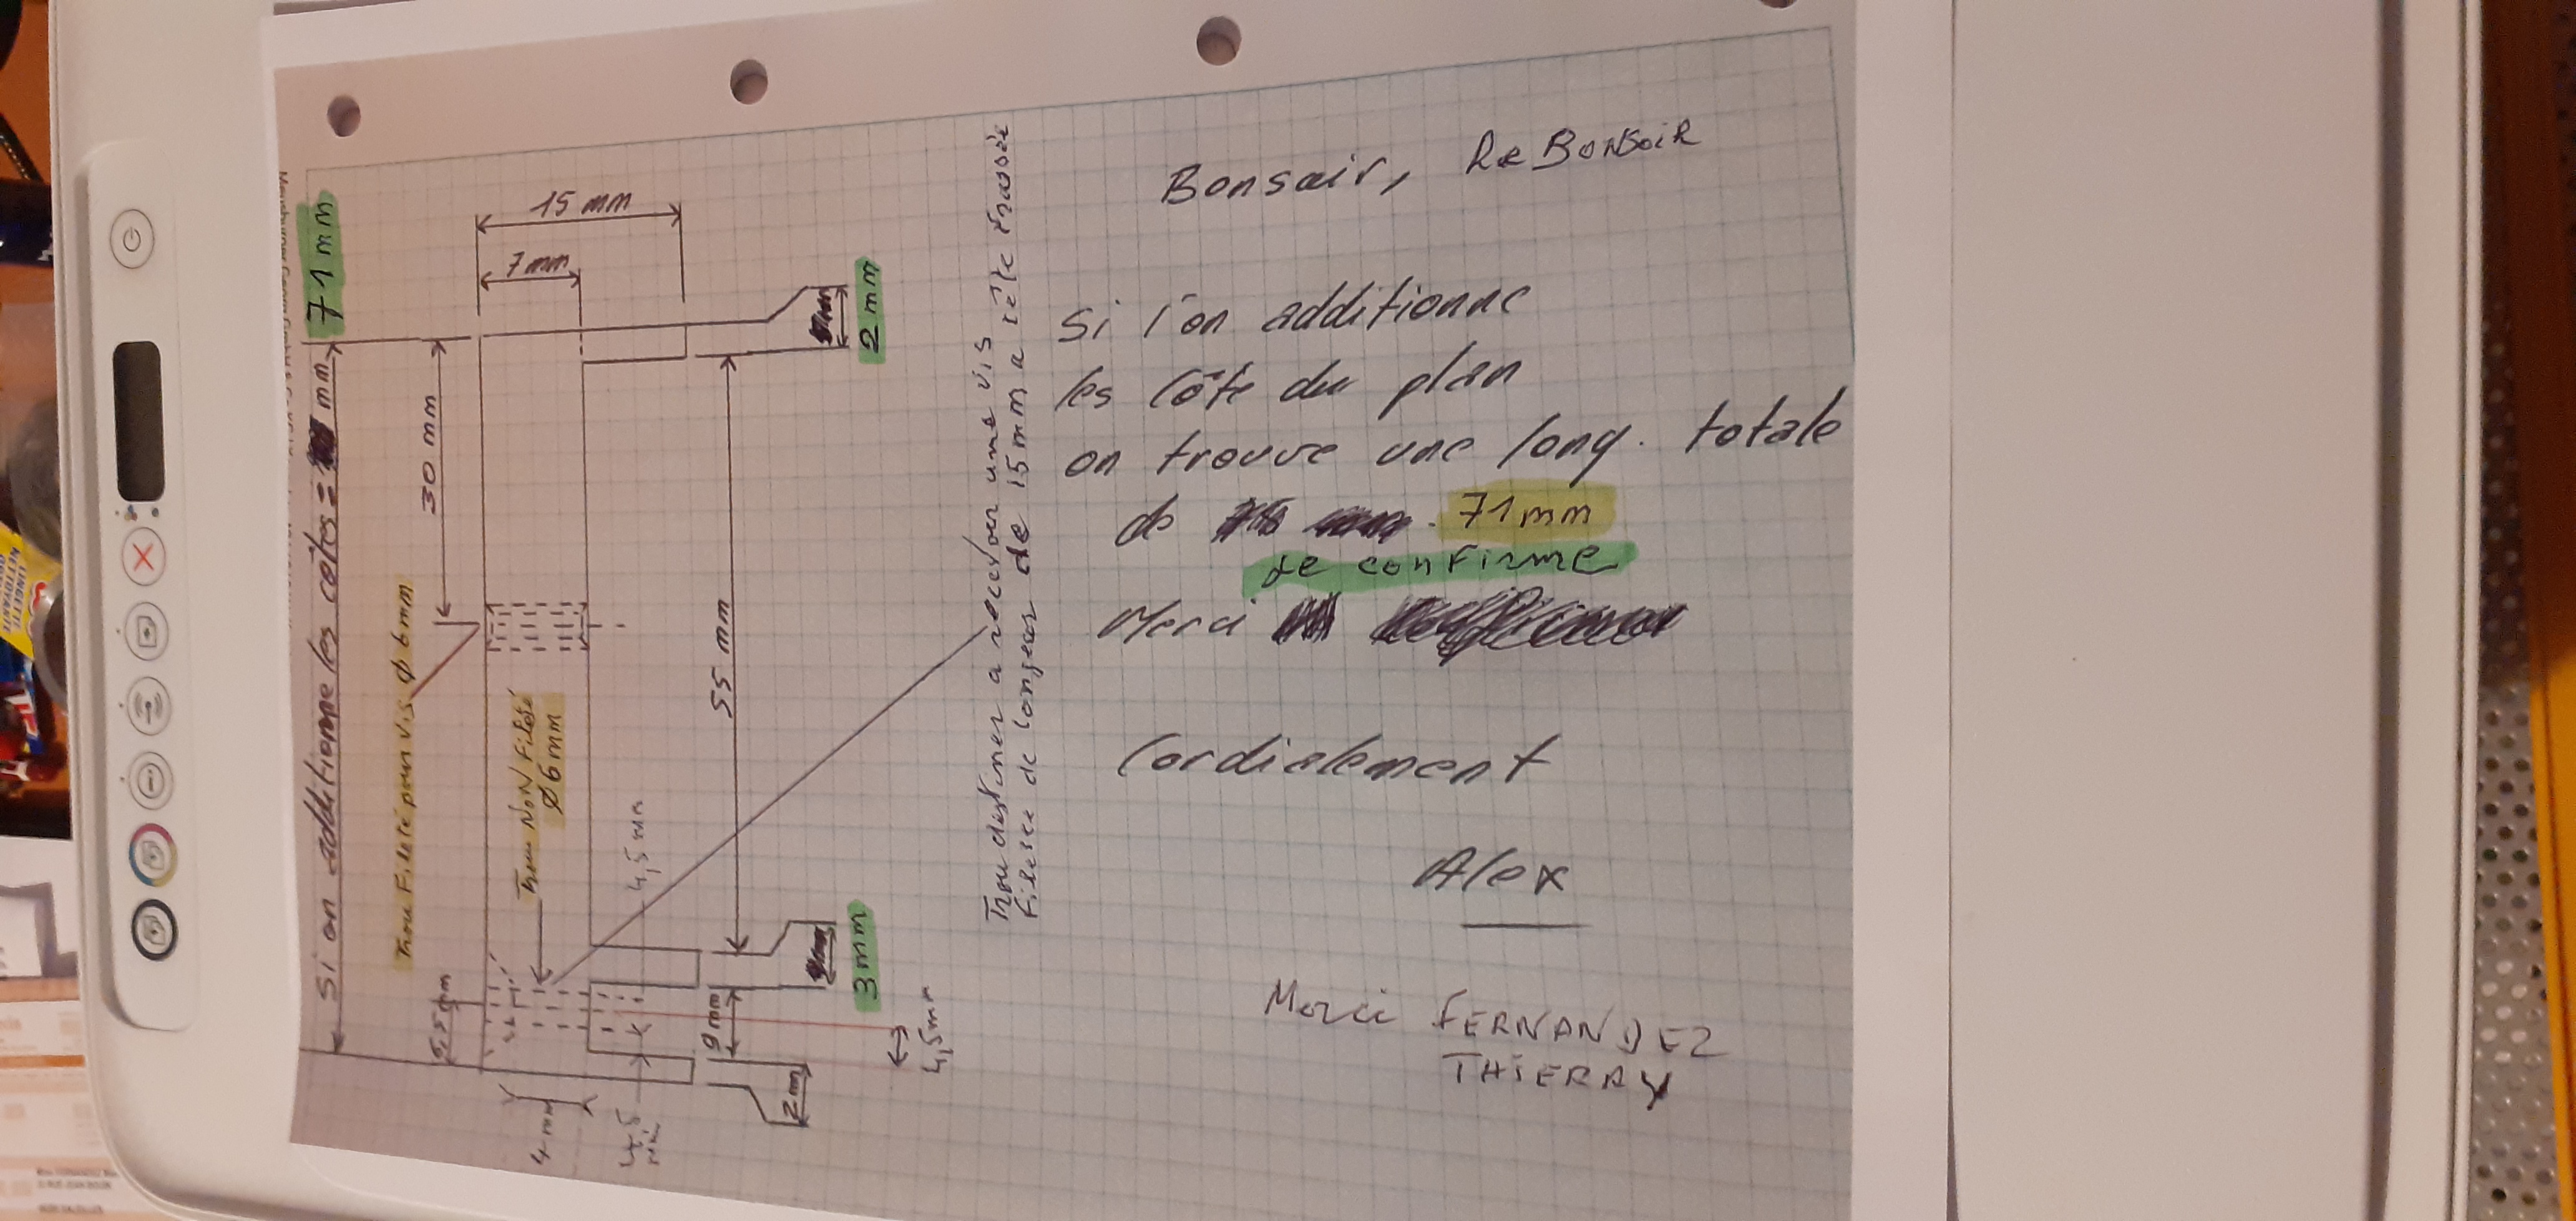 Si on additionne les côtes = mm 71 mm
Trou Fileté pour vis Ø 6 mm
30 mm
Trou NON Fileté
Ø 6 mm
15 mm
7 mm
55 mm
4,5 mm
5,5 mm
4 mm
4,5
9 mm
2 mm
3 mm
2 mm
4,5 mm
Trou destiner a recevoir une vis
de longeur de 15 mm a tête
Bonsoir, Re Bonsoir
Si l'on additionne
les côte du plan
on trouve une long. totale
de 71 mm
Je confirme
Merci
Cordialement
Alex
Merci FERNANDEZ
THIERRY
LINGETTE
NETTOYANTE